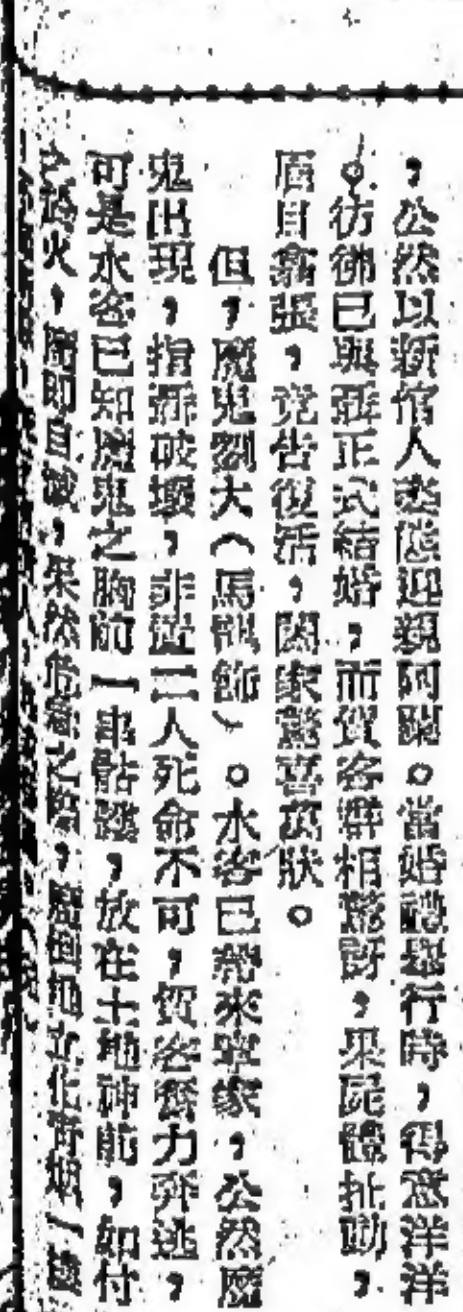 ，公然以新倌人迎親阿關。當婚禮舉行時，得意洋洋
。彷彿已與張正式結婚，而賀客群相驚訝，果屍體扯動，
眉目翕張，竟告復活，闔家驚喜萬狀。
但，魔鬼劉大（馬飾）。水客已帶來家，公然魔
鬼出現，指斥破壞，非置二人死命不可，賀客奪力奔逃，
可是水客已知魔鬼之胸前一串骷髏，放在土地神前，如付
之於火，魔即自滅，果然危急之際，魔倒地立化青烟一